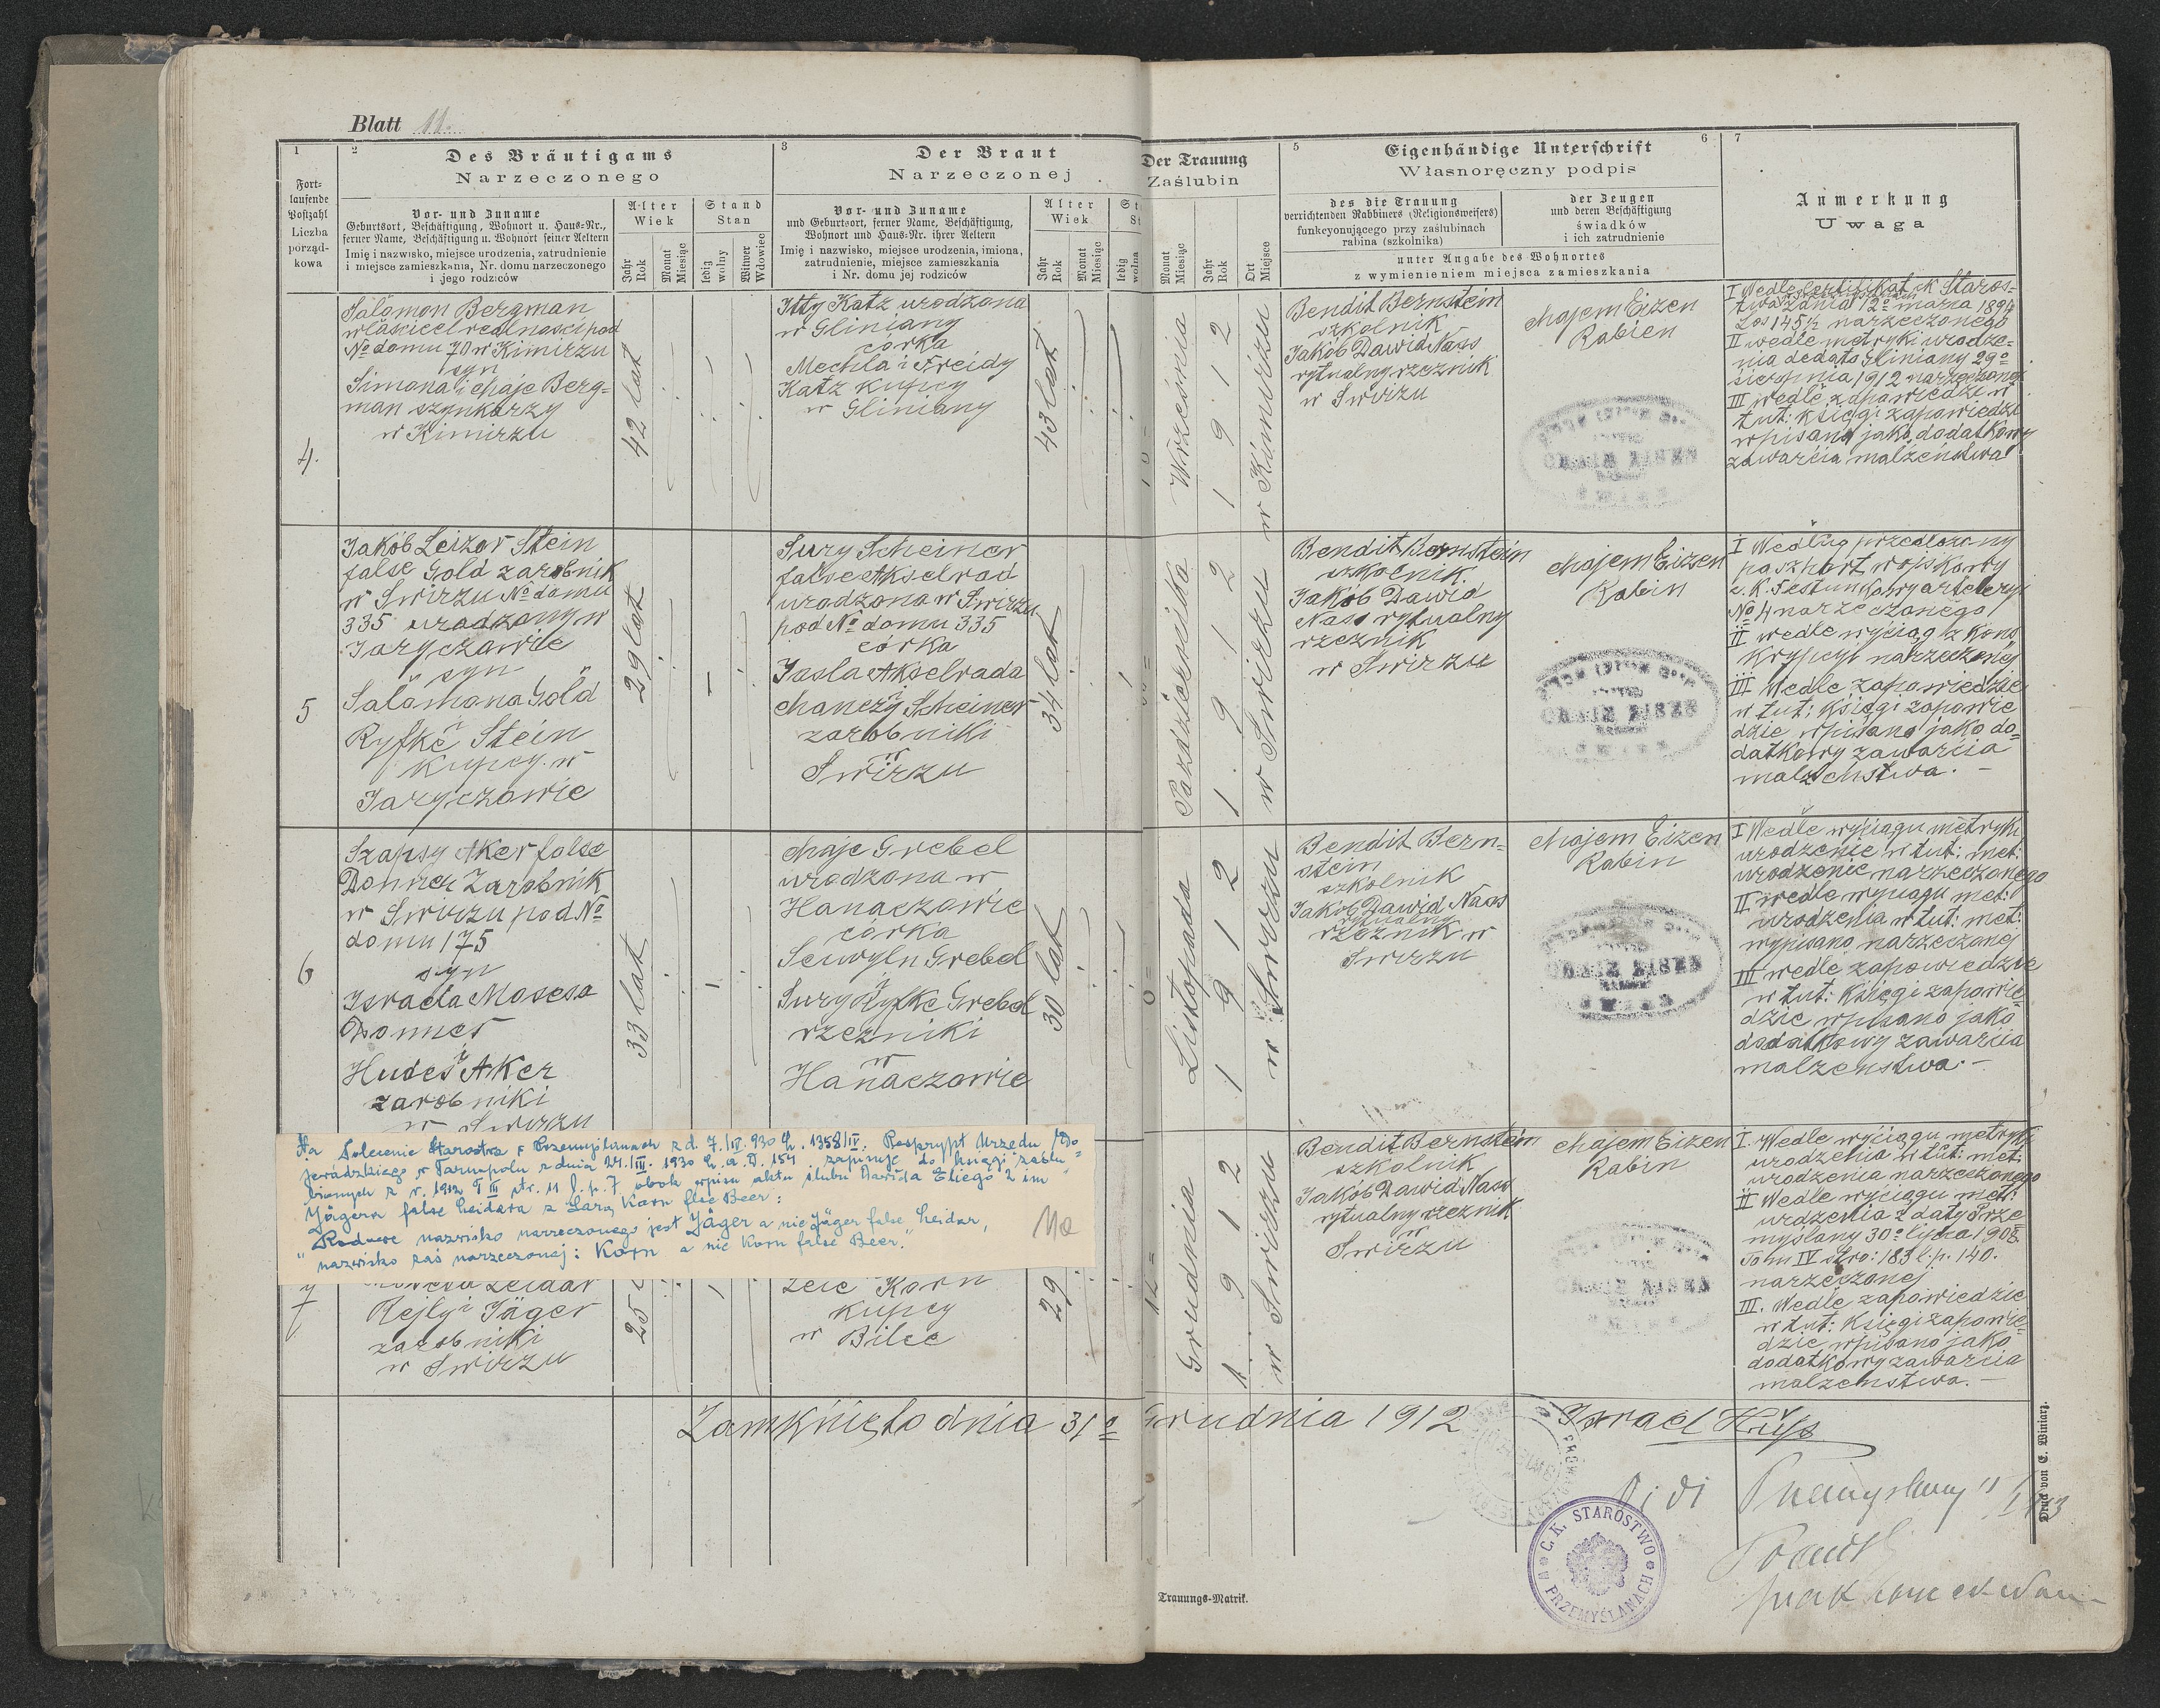 Blatt 11.
1
2
Des Bräutigams
Narzeczonego
3
Der Braut
Narzeczonej
Der Trauung
Zaślubin
5
Eigenhändige Unterschrift
Własnoręczny podpis
6
7
Anmerkung
Uwaga
Fort-
laufende
Postzahl
Liczba
porząd-
kowa
Vor- und Zuname
Geburtsort, Beschäftigung, Wohnort u. Haus-Nr.,
ferner Name, Beschäftigung u. Wohnort seiner Aeltern
Imię i nazwisko, miejsce urodzenia, zatrudnienie
i miejsce zamieszkania, Nr. domu narzeczonego
i jego rodziców
Alter
Wiek
Jahr
Rok
Monat
Miesiąc
Stand
Stan
ledig
wolny
Witwer
Wdowiec
Vor- und Zuname
und Geburtsort, ferner Name, Beschäftigung,
Wohnort und Haus-Nr. ihrer Aeltern
Imię i nazwisko, miejsce urodzenia, imiona,
zatrudnienie, miejsce zamieszkania
i Nr. domu jej rodziców
Alter
Wiek
Jahr
Rok
Monat
Miesiąc
St
St
ledig
wolna
Monat
Miesiąc
Jahr
Rok
Ort
Miejsce
des die Trauung
verrichtenden Rabbiners (Religionsweisers)
funkcyonującego przy zaślubinach
rabina (szkolnika)
der Zeugen
und deren Beschäftigung
świadków
i ich zatrudnienie
unter Angabe des Wohnortes
z wymienieniem miejsca zamieszkania
4.
Salomon Bergman
właściciel realnasci pod
No domu 70 w Kimirzu
syn
Simona i Chaje Berg-
man szynkarzy
w Kimirzu
42 lat
Itty Katz urodzona
w Gliniany
córka
Mechla i Freidy
Katz kupcy
w Gliniany
43 lat
Września
1912
w Kimirzu
Bendit Bernstein
szkolnik
Jakób Dawid Nass
rytualny rzeznik
w Swirzu
Chajem Eizen
Rabien
I Wedle certifikat ck Staros-
12o marca 1894
Los 145/2 narzeczonego
II wedle metryki urodze-
nia dedato Gliniany 29o
sierpnia 1912 narzeczonej
III wedle zapowiedzi w
tut: księgi zapowiedzi
wpisano jako dodatkowy
zawarcia malżeństwa
5
Jakób Leizor Stein
false Gold zarobnik
w Swirzu No domu
335 urodzony w
Jaryczowie
syn
Salomona Gold
i
Ryfke Stein
kupcy w
Jaryczowie
29 lat
1
Sury Scheiner
false Akselrad
urodzona w Swirzu
pod No domu 335
córka
Josla Akselrada
i
Chanczy Scheiner
zarobniki
w
Swirzu
34 lat
1
Pazdziernika
1912
w Swirzu
Bendit Bernstein
szkolnik.
Jakób Dawid
Nass rytualny
rzeznik
w Swirzu
Chajem Eizen
Rabin
I Według przedłozony
paszport wojskowy
c. K. Festunkowy artelerji
No 4 narzeczonego
II wedle wyciąg z kons
krypcyi narzeczonej
III Wedle zapowiedzie
w tut: księgi zapowie
dzie wpisano jako do-
datkowy zawarcia
malzenstwa. -
6
Szapsy Aker false
Donner Zarobnik
w Swirzu pod No
domu 175
syn
Israela Mosesa
Donner
i
Hudes Aker
zarobniki
w Swirzu
33 lat
1
Chaje Grebel
urodzona w
Hanaczowie
córka
Sewryln Grebel
i
Sury Ryfke Grebel
rzezniki
w
Hanaczowie
30 lat
Listopada
1912
w Swirzu
Bendit Bern-
stein
szkolnik
Jakób Dawid Nass
rytualny
rzeznik w
Swirzu
Chajem Eizen
Rabin
I Wedle wyciągu metryki
urodzenie w tut: met:
urodzenie narzeczonego
II wedle wyciągu met:
urodzenia w tut: met:
wypisano narzeczonej
III wedle zapowiedzie
w tut: księgi zapowie-
dzie wpisano jako
dodatkowy zawarcia
malzenstwa. -
Na Polecenie Starostwa w Przemyślanach z d. 7./IV. 930 L. 1358/IV. Reskrypt Urzędu Wo
jewódzkiego w Tarnopolu z dnia 24./III. 1930 L. a. D. 154 zapisuje do księgi zaślu-
bionych z r. 1912 T III str. 11 l. p. 7 obok wpisu aktu ślubu Dawida Eliego 2 im
Jägera false Leidara z Sarą Korn flse Beer:
"Rodowe nazwisko narzeczonego jest Jäger a nie Jäger false Leidar,
nazwisko zaś narzeczonej: Korn a nie Korn false Beer."
7
Leidar
Rejly Jäger
zarobniki
w Swirzu
25
1
Korn
kupcy
w Bilce
29
Grudnia
1912
w Swirzu
Bendit Bernstein
szkolnik
Jakób Dawid Nass
rytualny rzeznik
w
Swirzu
Chajem Eizen
Rabin
I. Wedle wyciągu metryki
urodzenia w tut: met:
urodzenia narzeczonego
II Wedle wyciągu met:
urdzenia z daty Prze
myslany 30o lipca 1908
Tom IV stro: 183 l:p. 140.
narzeczonej
III. Wedle zapowiedzie
w tut: księgi zapowie-
dzie wpisano jako
dodatkowy zawarcia
malzenstwa. -
Zamknięto dnia 31o Grudnia 1912
Israel Hüß
C. K. STAROSTWO
W PRZEMYŚLANACH
Trauungs-Matrik.
Druck von E. Winiarz.